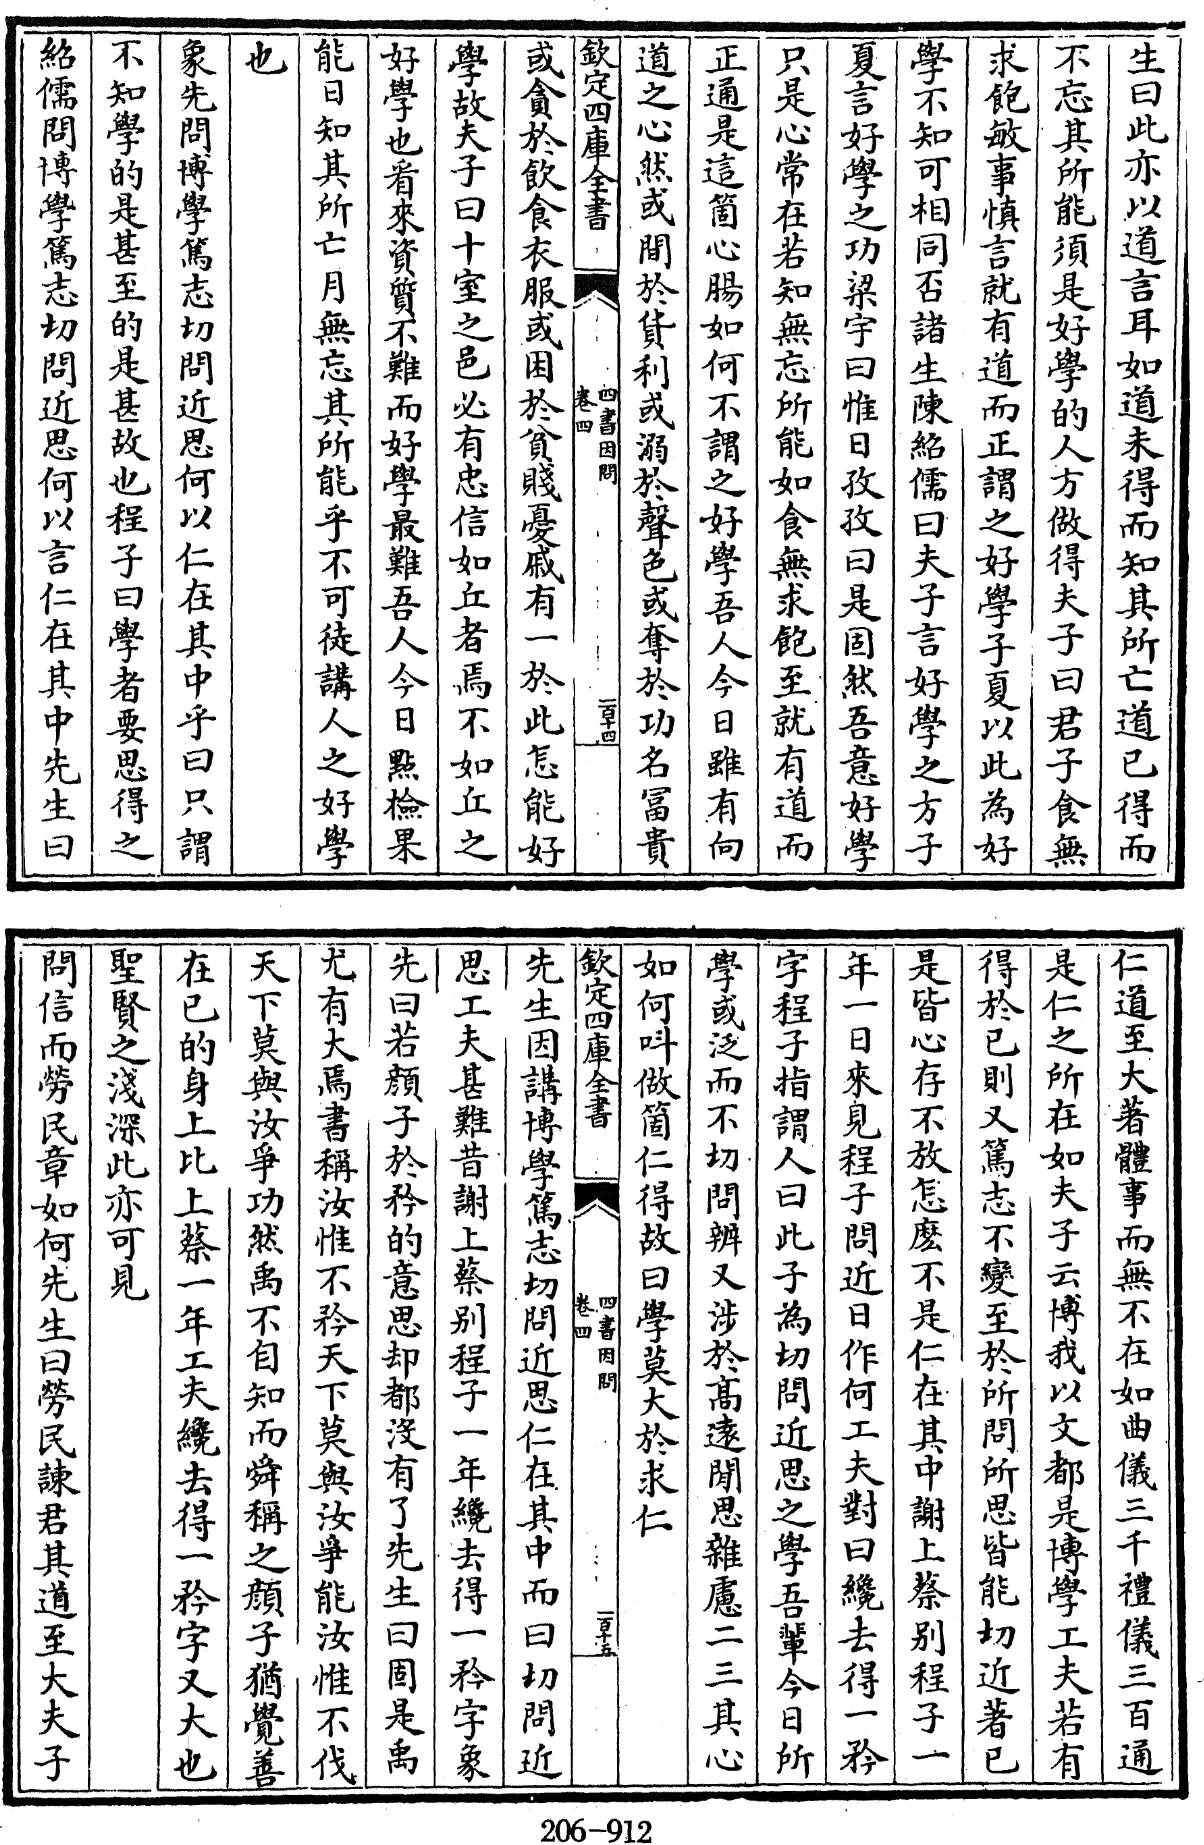 生曰此亦以道言耳如道未得而知其所亡道已得而
不忘其所能須是好學的人方做得夫子曰君子食無
求飽敏事慎言就有道而正謂之好學子夏以此為好
學不知可相同否諸生陳紹儒曰夫子言好學之方子
夏言好學之功梁宇曰惟日孜孜曰是固然吾意好學
只是心常在若知無忘所能如食無求飽至就有道而
正通是這箇心腸如何不謂之好學吾人今日雖有向
道之心然或間於貨利或溺於聲色或奪於功名冨貴
欽定四庫全書
四書因問
卷四
一百十四
或貪於飲食衣服或困於貧賤憂戚有一於此怎能好
學故夫子曰十室之邑必有忠信如丘者焉不如丘之
好學也看來資質不難而好學最難吾人今日點檢果
能日知其所亡月無忘其所能乎不可徒講人之好學
也
象先問博學篤志切問近思何以仁在其中乎曰只謂
不知學的是甚至的是甚故也程子曰學者要思得之
紹儒問博學篤志切問近思何以言仁在其中先生曰
仁道至大著體事而無不在如曲儀三千禮儀三百通
是仁之所在如夫子云博我以文都是博學工夫若有
得於已則又篤志不變至於所問所思皆能切近著已
是皆心存不放怎麽不是仁在其中謝上蔡别程子一
年一日來見程子問近日作何工夫對曰纔去得一矜
字程子指謂人曰此子為切問近思之學吾輩今日所
學或泛而不切問辨又涉於髙逺閒思雜慮二三其心
如何呌做箇仁得故曰學莫大於求仁
欽定四庫全書
四書因問
卷四
一百十五
先生因講博學篤志切問近思仁在其中而曰切問近
思工夫甚難昔謝上蔡别程子一年纔去得一矜字象
先曰若顔子於矜的意思却都沒有了先生曰固是禹
尤有大焉書稱汝惟不矜天下莫與汝爭能汝惟不伐
天下莫與汝爭功然禹不自知而舜稱之顔子猶覺善
在已的身上比上蔡一年工夫纔去得一矜字又大也
聖賢之淺深此亦可見
問信而勞民章如何先生曰勞民諫君其道至大夫子
206-912